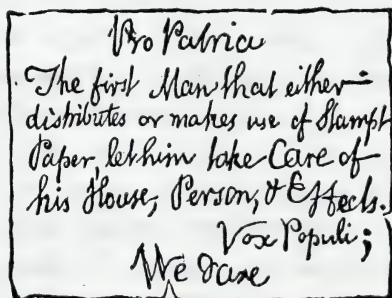 Pro Patria
The first Man that either
distributes or makes use of Stampt
Paper, let him take Care of
his House, Person, & Effects.
Vox Populi;
We dare